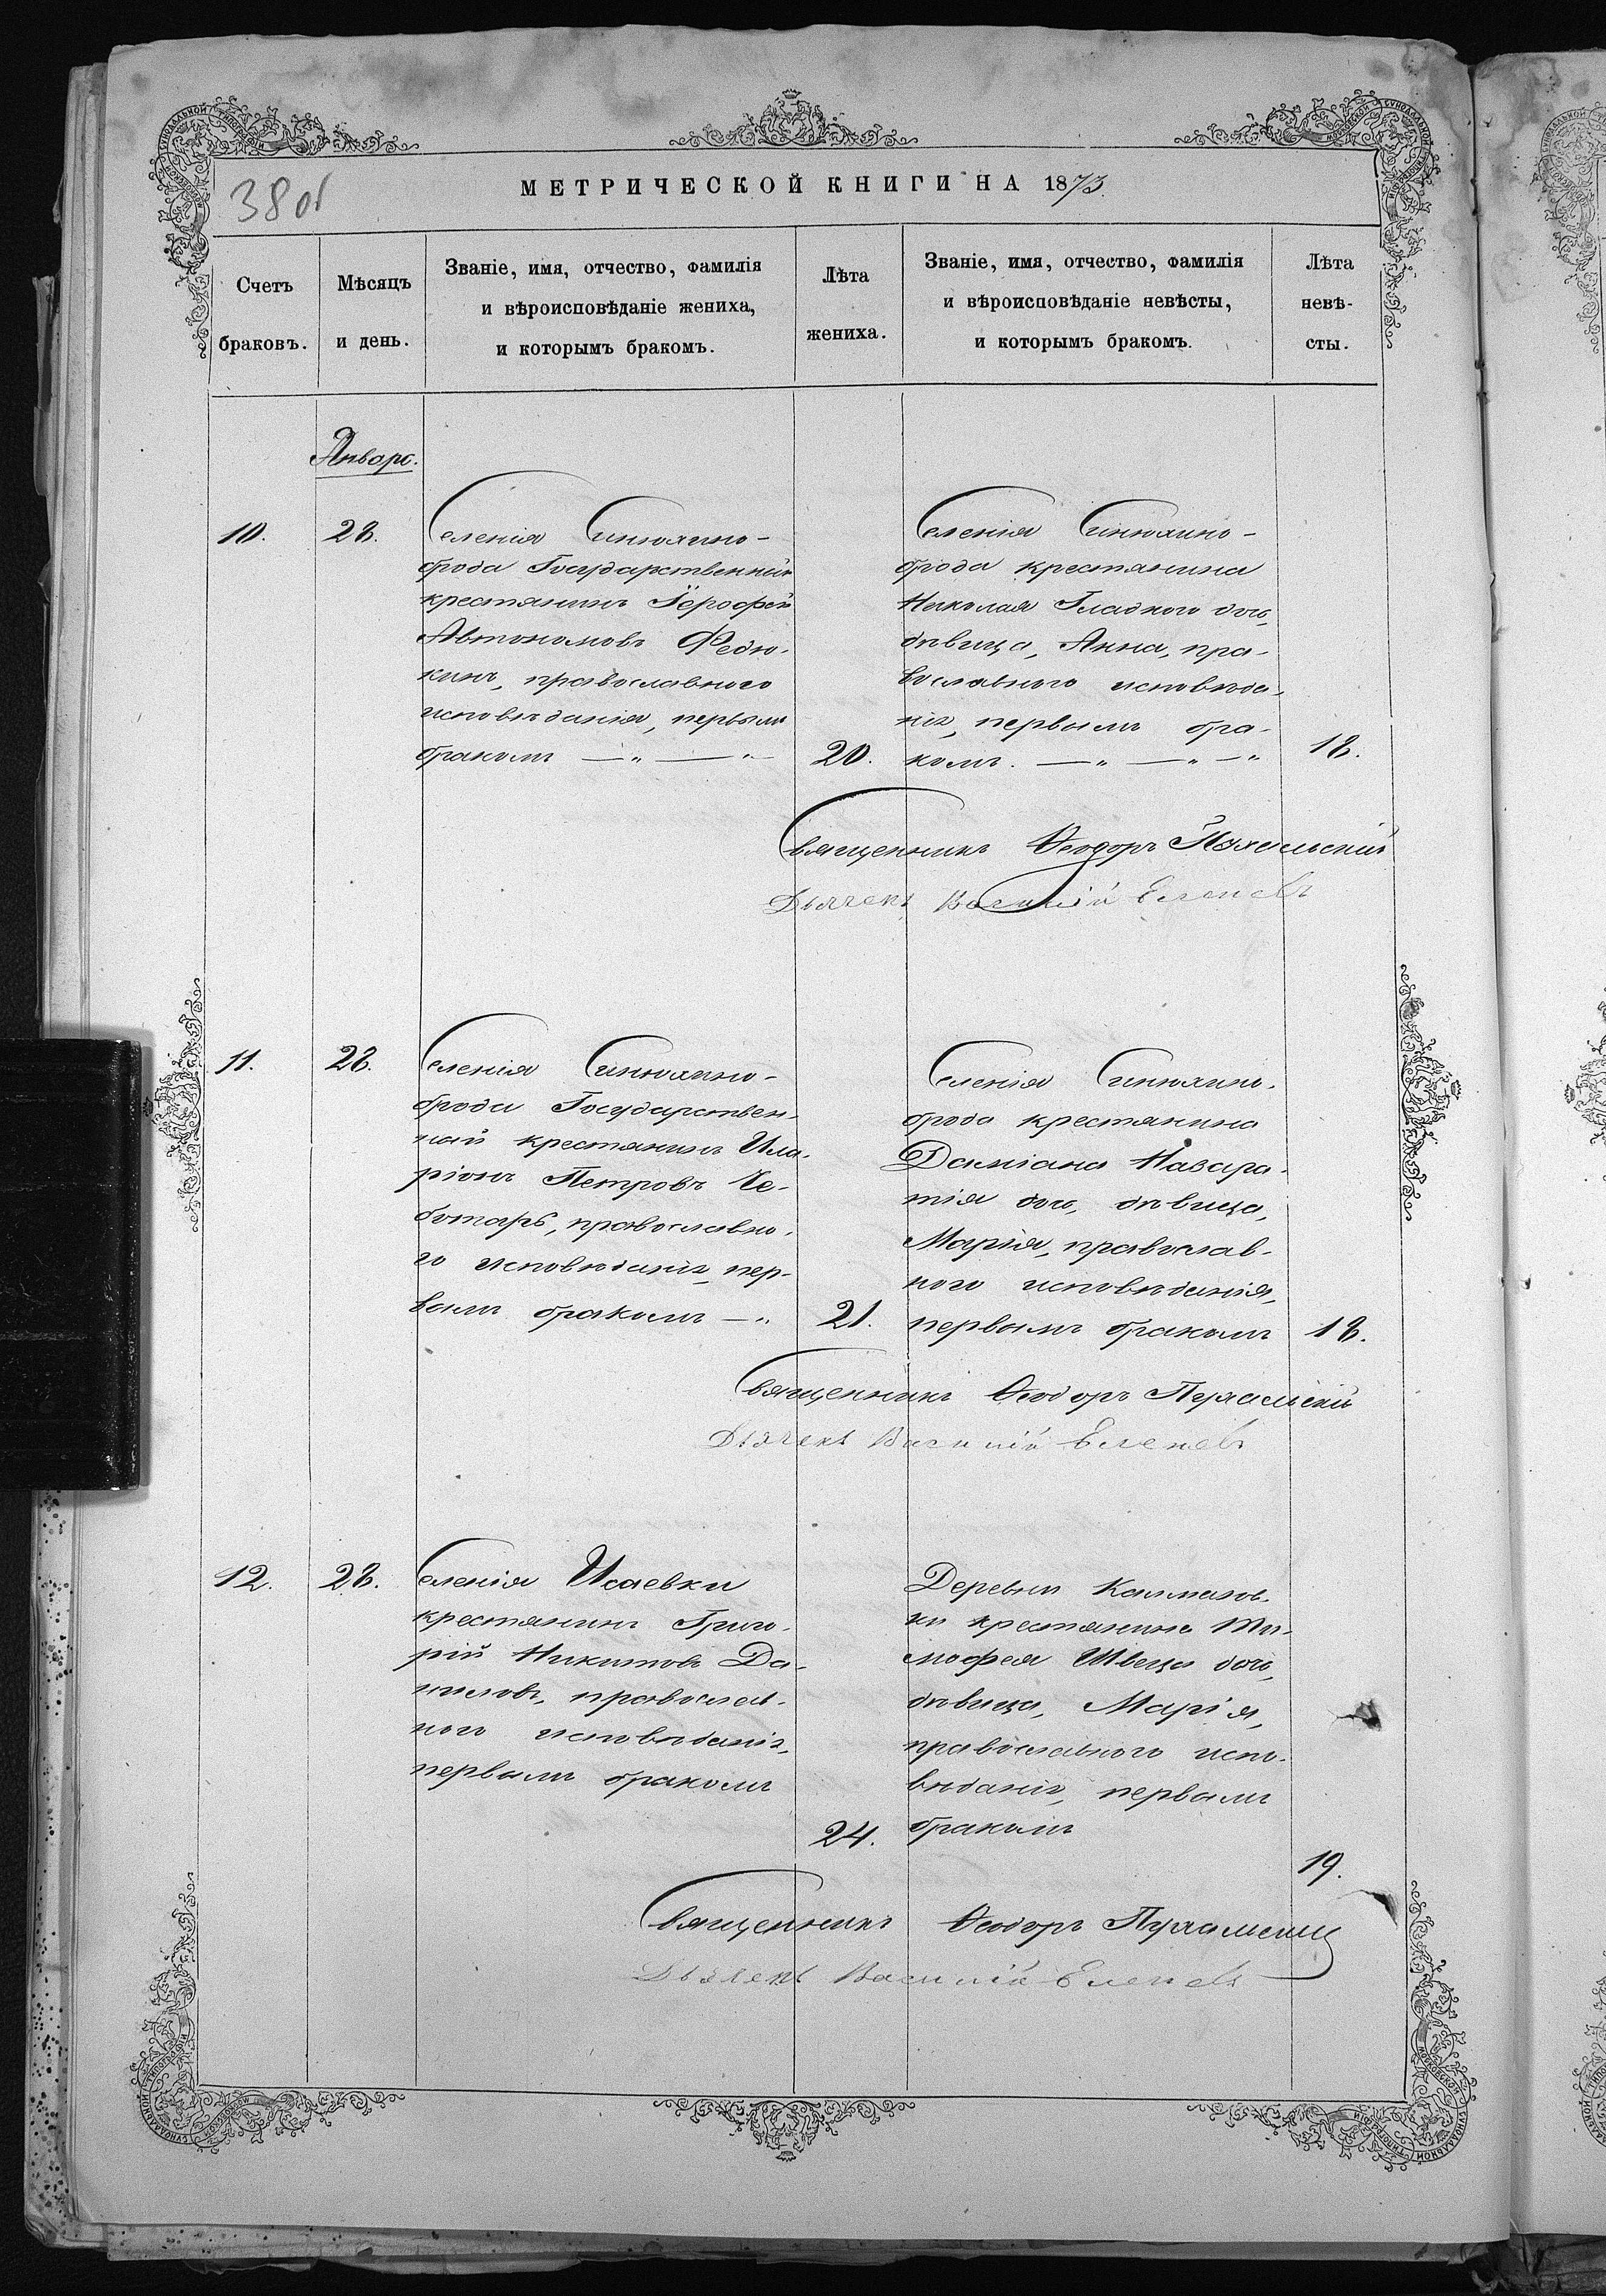 38 об
МЕТРИЧЕСКОЙ КНИГИ НА 1873.
Счетъ браковъ.
Мѣсяцъ и день.
Званіе, имя, отчество, фамилія
и вѣроисповѣданіе жениха,
и которымъ бракомъ.
Лѣта жениха.
Званіе, имя, отчество, фамилія
и вѣроисповѣданіе невѣсты,
и которымъ бракомъ.
Лѣта невѣ-
сты.
Январь.
10.
28.
Селенія Синюхино-
брода Государственный
крестянинъ Іерофей
Автономовъ Федю-
кинъ, православного
исповѣданія, первымъ
бракомъ — „ — „ —
20.
Селенія Синюхино-
брода крестянина
Николая Гладкого дочь,
дѣвица, Анна, пра-
вославного исповѣда-
нія, первымъ бра-
комъ. — „ — „ — „
18.
Священникъ Феодоръ
Дьячекъ Василій Еленевъ
11.
28.
Селенія Синюхино-
брода Государствен-
ный крестянинъ Ила-
ріонъ Петровъ Че-
ботарь, православно-
го исповѣданія, пер-
вымъ бракомъ — „
21.
Селенія Синюхино-
брода крестянина
Даміана Назара-
тія дочь, дѣвица,
Марія, православ-
ного исповѣданія,
первымъ бракомъ
18.
Священникъ Феодоръ Пухальскій
Дьячекъ Василій Еленевъ
12.
28.
Селенія Исаевки
крестянинъ Григо-
рій Никитовъ Да-
ниловъ, православ-
ного исповѣданія,
первымъ бракомъ
24.
Деревни Калмазов-
ки крестянина Ти-
мофея Швеца дочь,
дѣвица, Марія,
православного испо-
вѣданія, первымъ
бракомъ
19.
Священникъ Феодоръ Пухальскій
Дьячекъ Василій Еленевъ